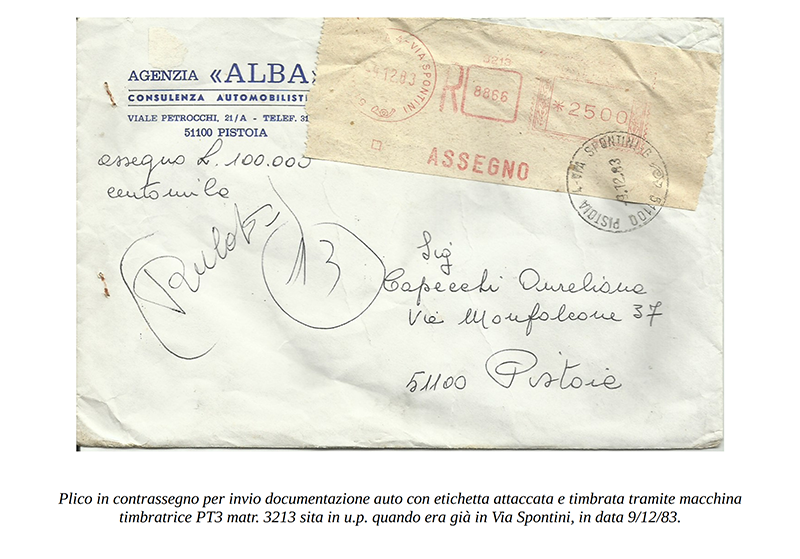 AGENZIA «ALBA»
CONSULENZA AUTOMOBILISTI
VIALE PETROCCHI, 21/A - TELEF. 31
51100 PISTOIA
4-VIA SPONTINI
12.83
3213
R
8866
*2500
ASSEGNO
51100 PISTOIA 4-VIA SPONTINI
9.12.83
assegno £. 100.000
centomila
13
Sig
Capecchi Aureliana
Via Monfalcone 37
51100 Pistoia
Plico in contrassegno per invio documentazione auto con etichetta attaccata e timbrata tramite macchina
timbratrice PT3 matr. 3213 sita in u.p. quando era già in Via Spontini, in data 9/12/83.